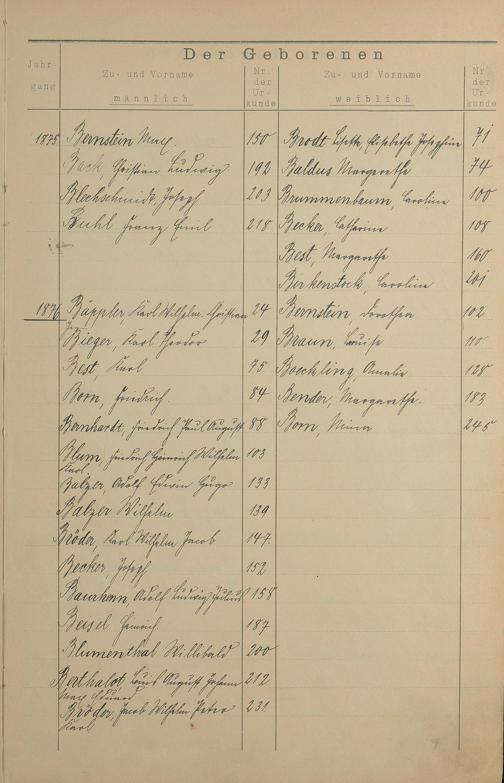 Der Geborenen
Jahr-
gang
Zu- und Vorname
männlich
Nr.
der
Ur-
kunde
Zu- und Vorname
weiblich
Nr.
der
Ur-
kunde
1875 Bernstein Max. 150 Brodt Lisette, Elisabetha Josephine 71
Back, Christian Ludwig. 192 Baldus Margarethe 74
Blechschmidt, Joseph 203 Brummenbaum, Caroline 100
Buhl Franz Emil 218 Becker, Catharine 108
Best, Margarethe 160
Birkenstock, Caroline 201
1876 Bäppler, Karl Wilhelm Christian 24 Bernstein, Dorothea 102
Bieger, Karl Theodor 29 Braun, Louise 110
Best, Karl 75 Boeckling, Amalie 128
Born, Friedrich. 84 Bender, Margarethe. 183
Bernhardt, Friedrich Paul August 88 Born, Mina 245
Blum, Friedrich Heinrich Wilhelm 103
Karl
Balzer, Adolf Edwin Hugo 133
Balzer Wilhelm 139
Bröder, Karl Wilhelm Jacob 147.
Becker, Joseph 152
Baumann, Adolf Ludwig Julius 158
Beisel Heinrich. 187
Blumenthal Willibald 200
Berthalot, Louis August Johann 212
Max Eduard
Bröder Jacob Wilhelm Peter 231
Karl